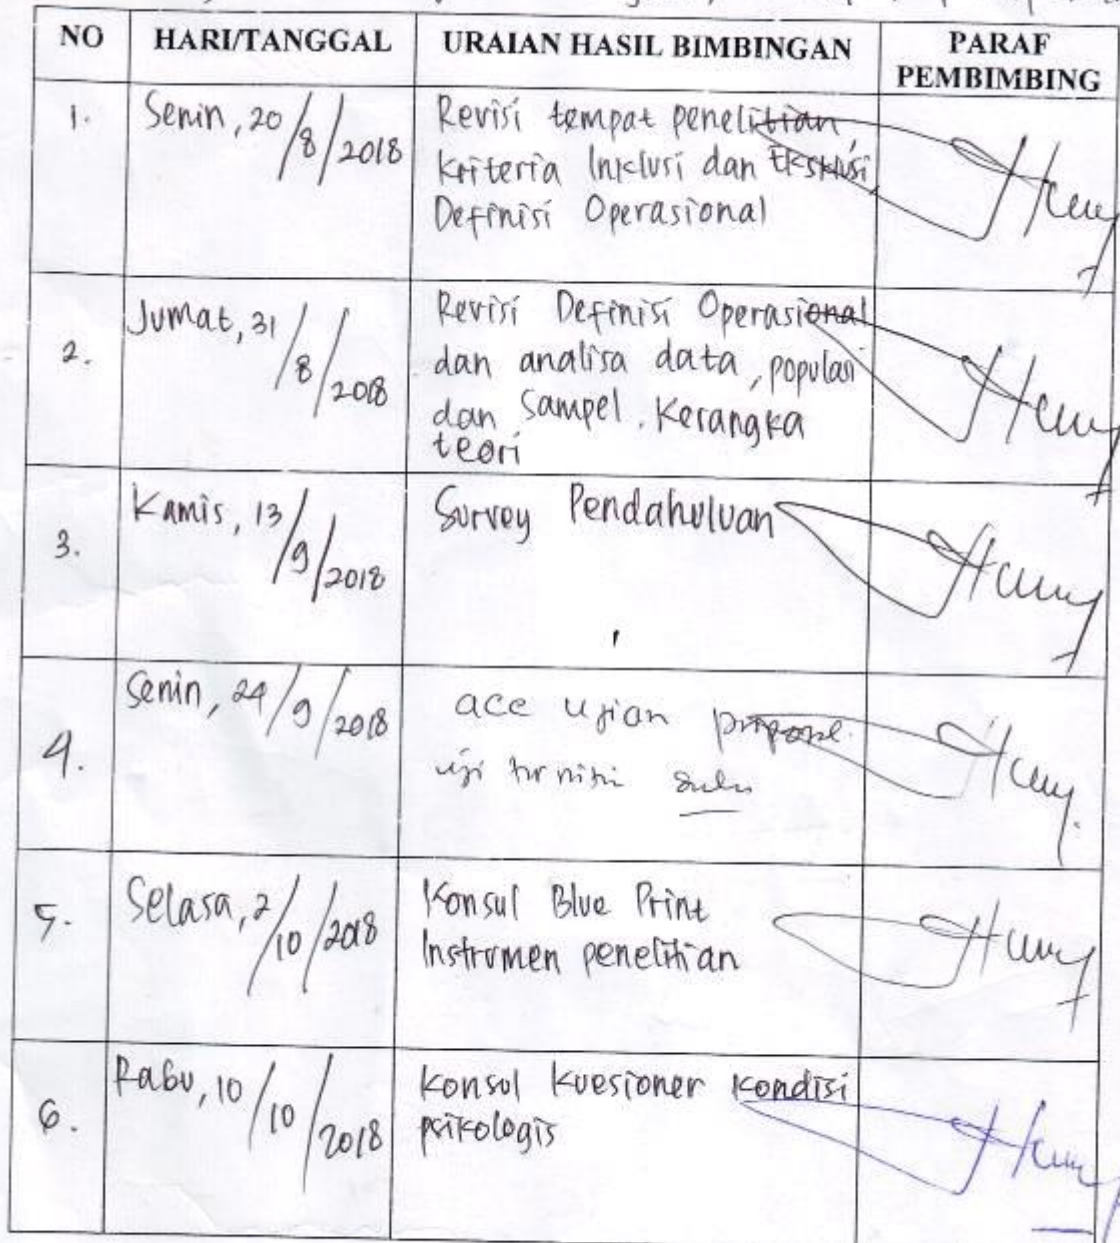 NO HARI/TANGGAL URAIAN HASIL BIMBINGAN PARAF PEMBIMBING
1. Senin, 20/8/2018 Revisi tempat penelitian
Kriteria Inklusi dan Eksklusi
Definisi Operasional
2. Jumat, 31/8/2018 Revisi Definisi Operasional
dan analisa data, populasi
dan Sampel. Kerangka
teori
3. Kamis, 13/9/2018 Survey Pendahuluan
4. Senin, 24/9/2018 acc ujian
uji
5. Selasa, 2/10/2018 Konsul Blue Print
Instrumen penelitian
6. Rabu, 10/10/2018 Konsul Kuesioner Kondisi
psikologis